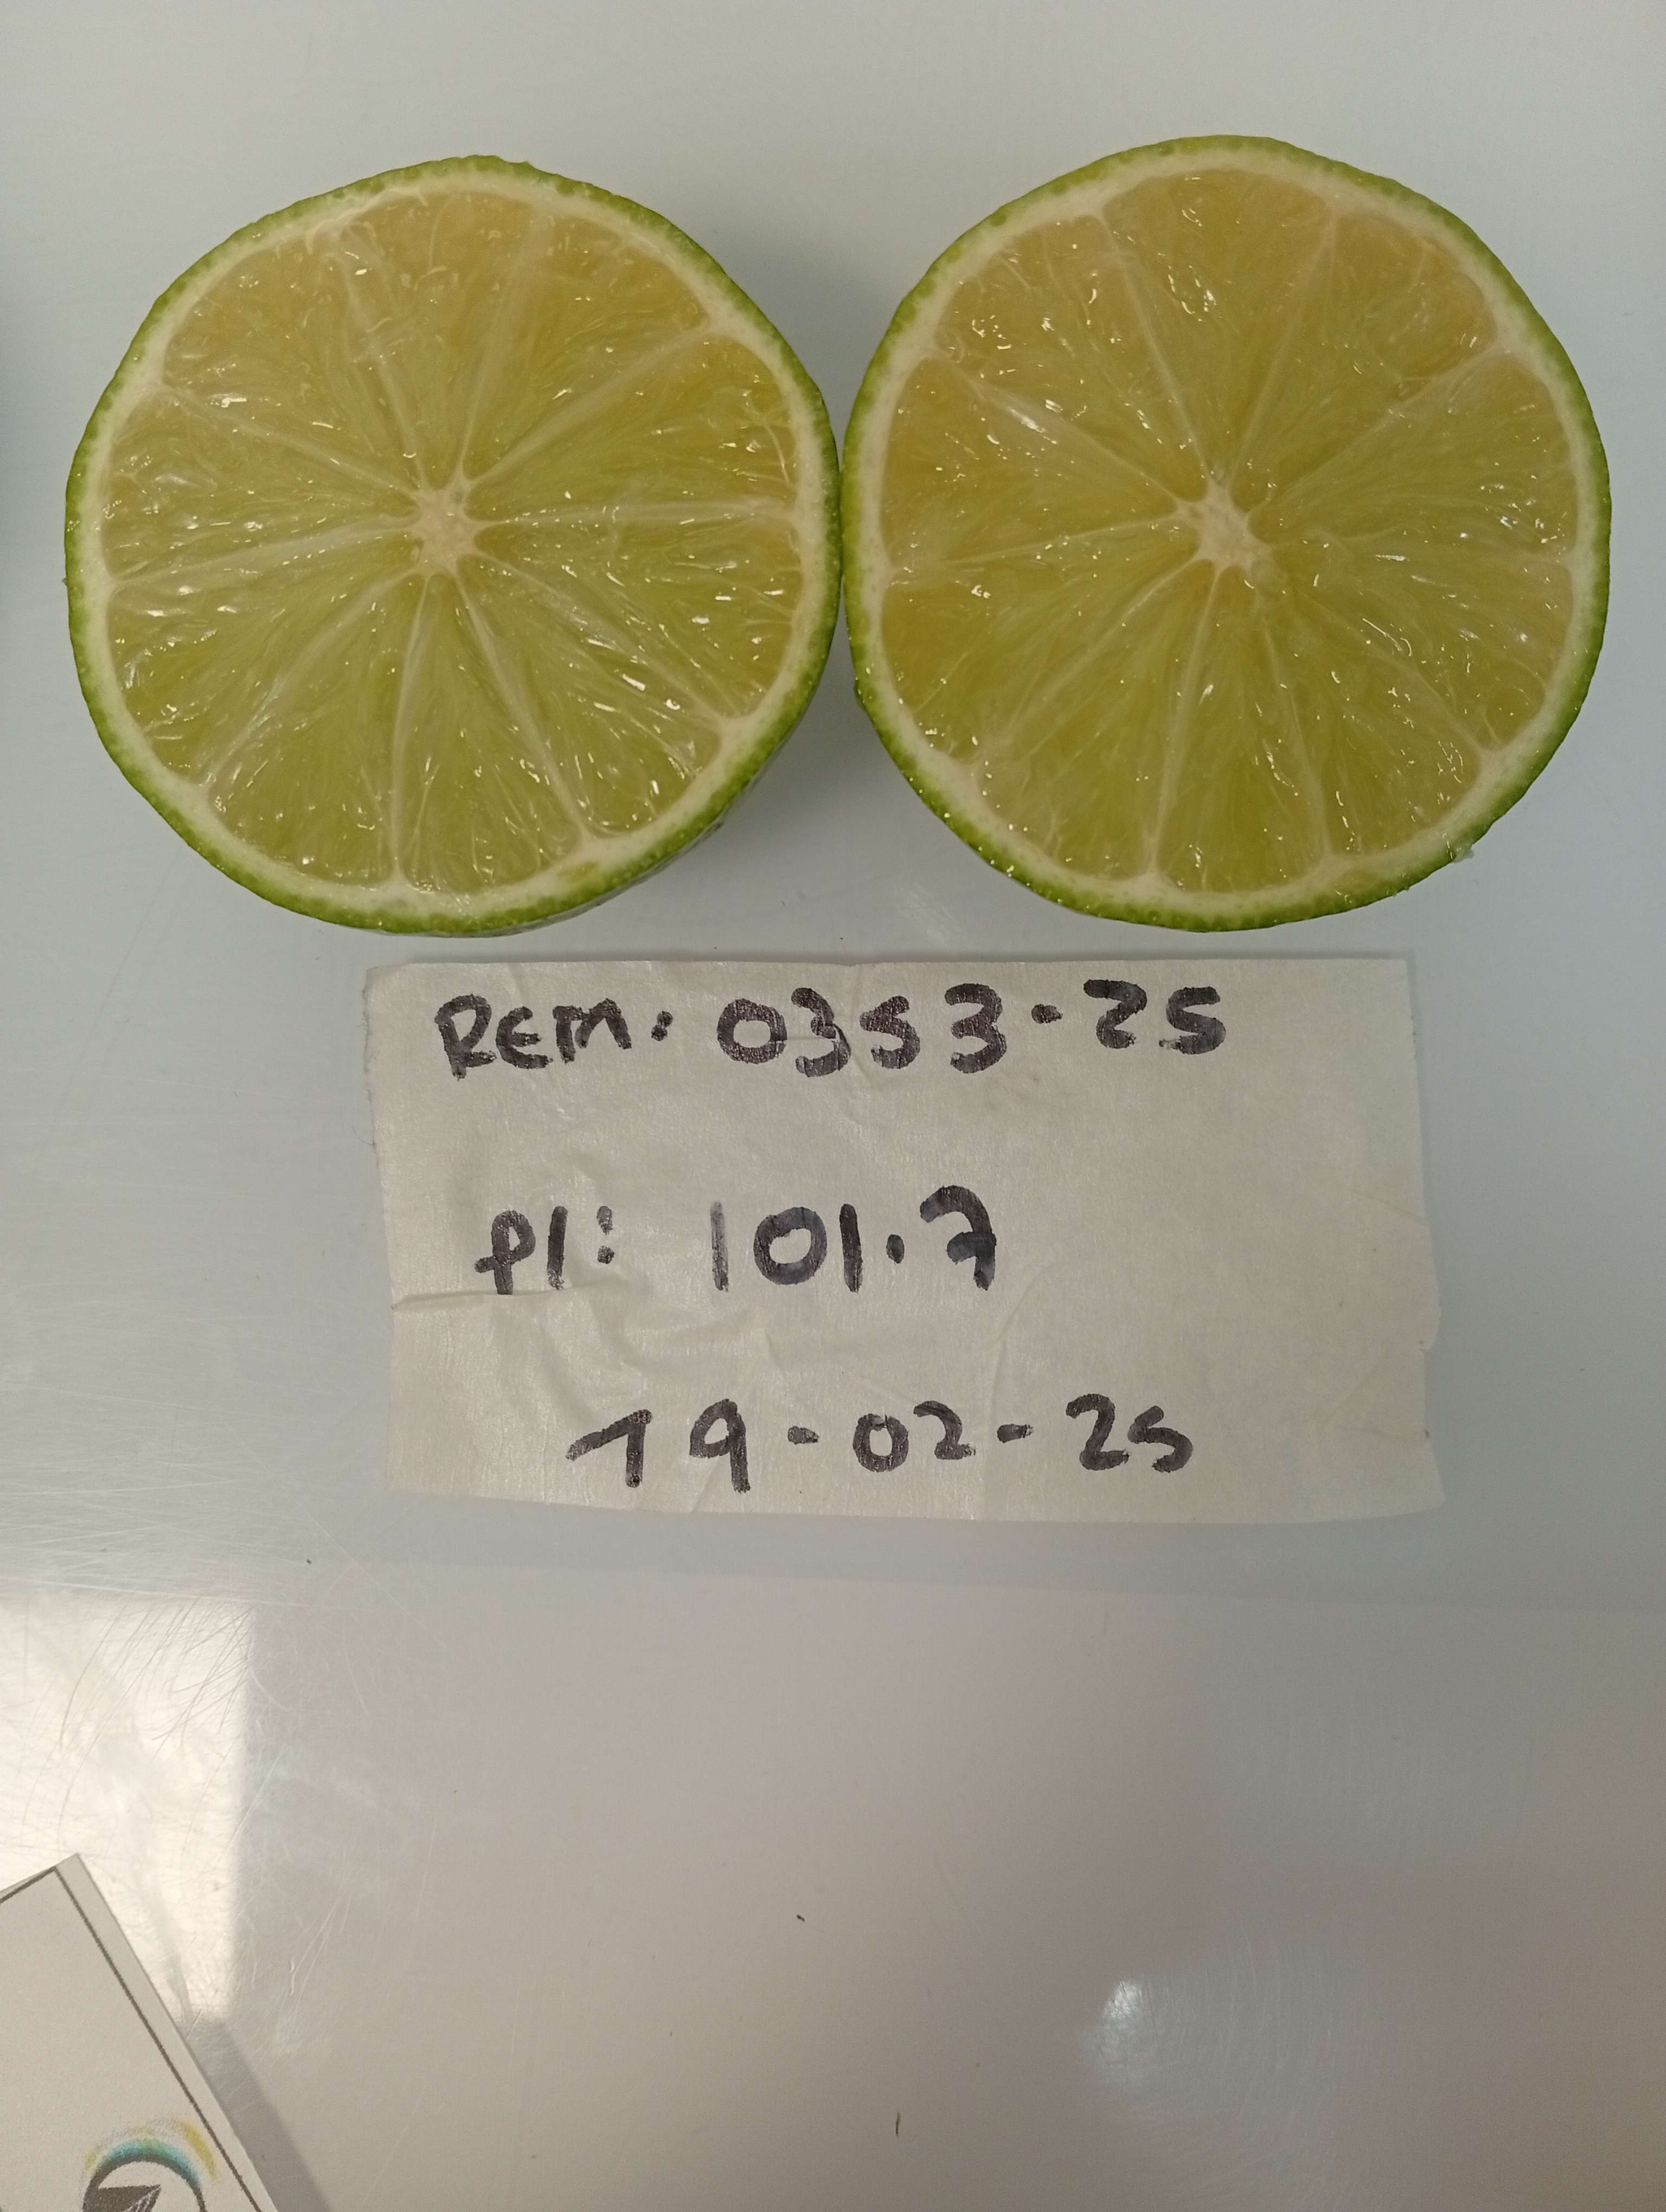 REM: 0353-25
PI: 101.7
19-02-25